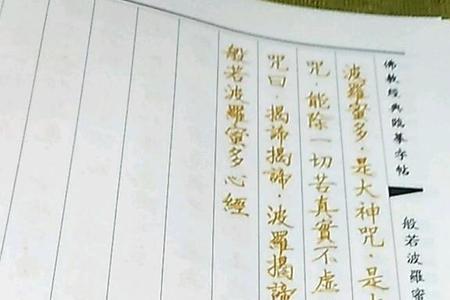 佛教經典臨摹字帖
般若波羅蜜
波羅蜜多．是大神咒．是
咒．能除一切苦真實不虛
咒曰．揭諦揭諦．波羅揭諦
般若波羅蜜多心經